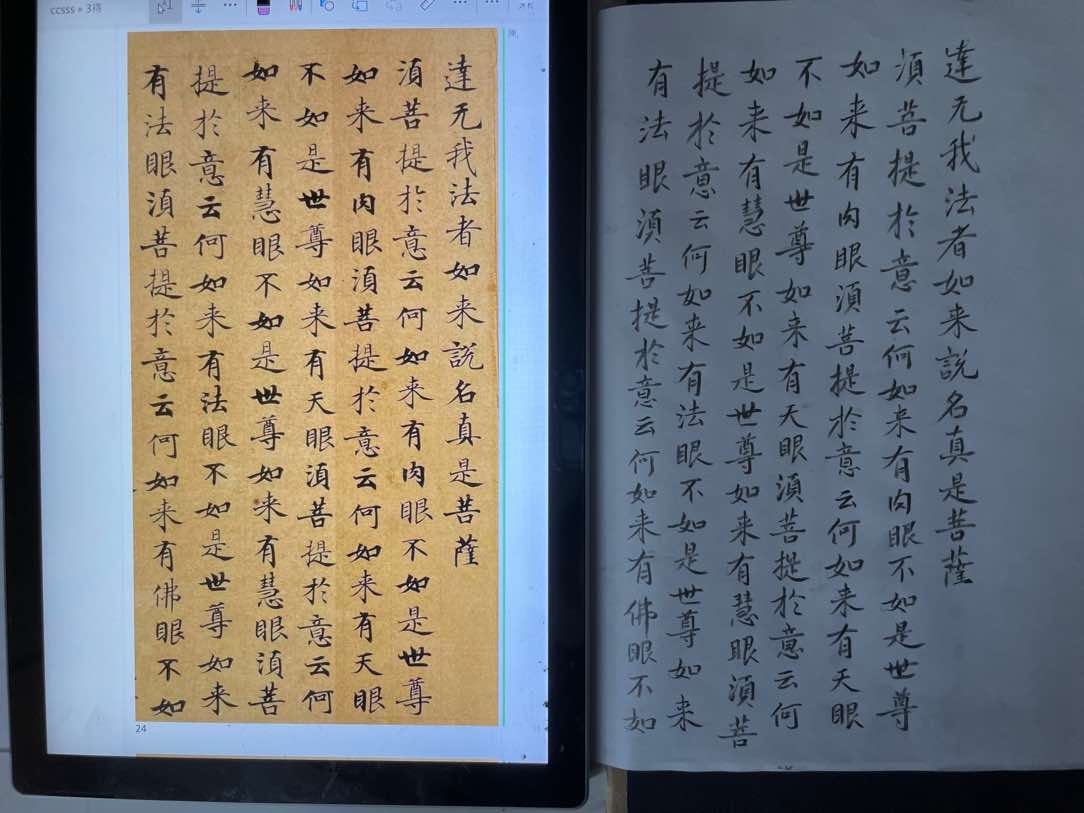 ccsss
達无我法者如来說名真是菩薩
湏菩提於意云何如来有肉眼不如是世尊
如来有肉眼湏菩提於意云何如来有天眼
不如是世尊如来有天眼湏菩提於意云何
如来有慧眼不如是世尊如来有慧眼湏菩
提於意云何如来有法眼不如是世尊如来
有法眼湏菩提於意云何如来有佛眼不如
24
達无我法者如来説名真是菩薩
湏菩提於意云何如来有肉眼不如是世尊
如来有肉眼湏菩提於意云何如来有天眼
不如是世尊如来有天眼湏菩提於意云何
如来有慧眼不如是世尊如来有慧眼湏菩
提於意云何如来有法眼不如是世尊如来
有法眼湏菩提於意云何如来有佛眼不如